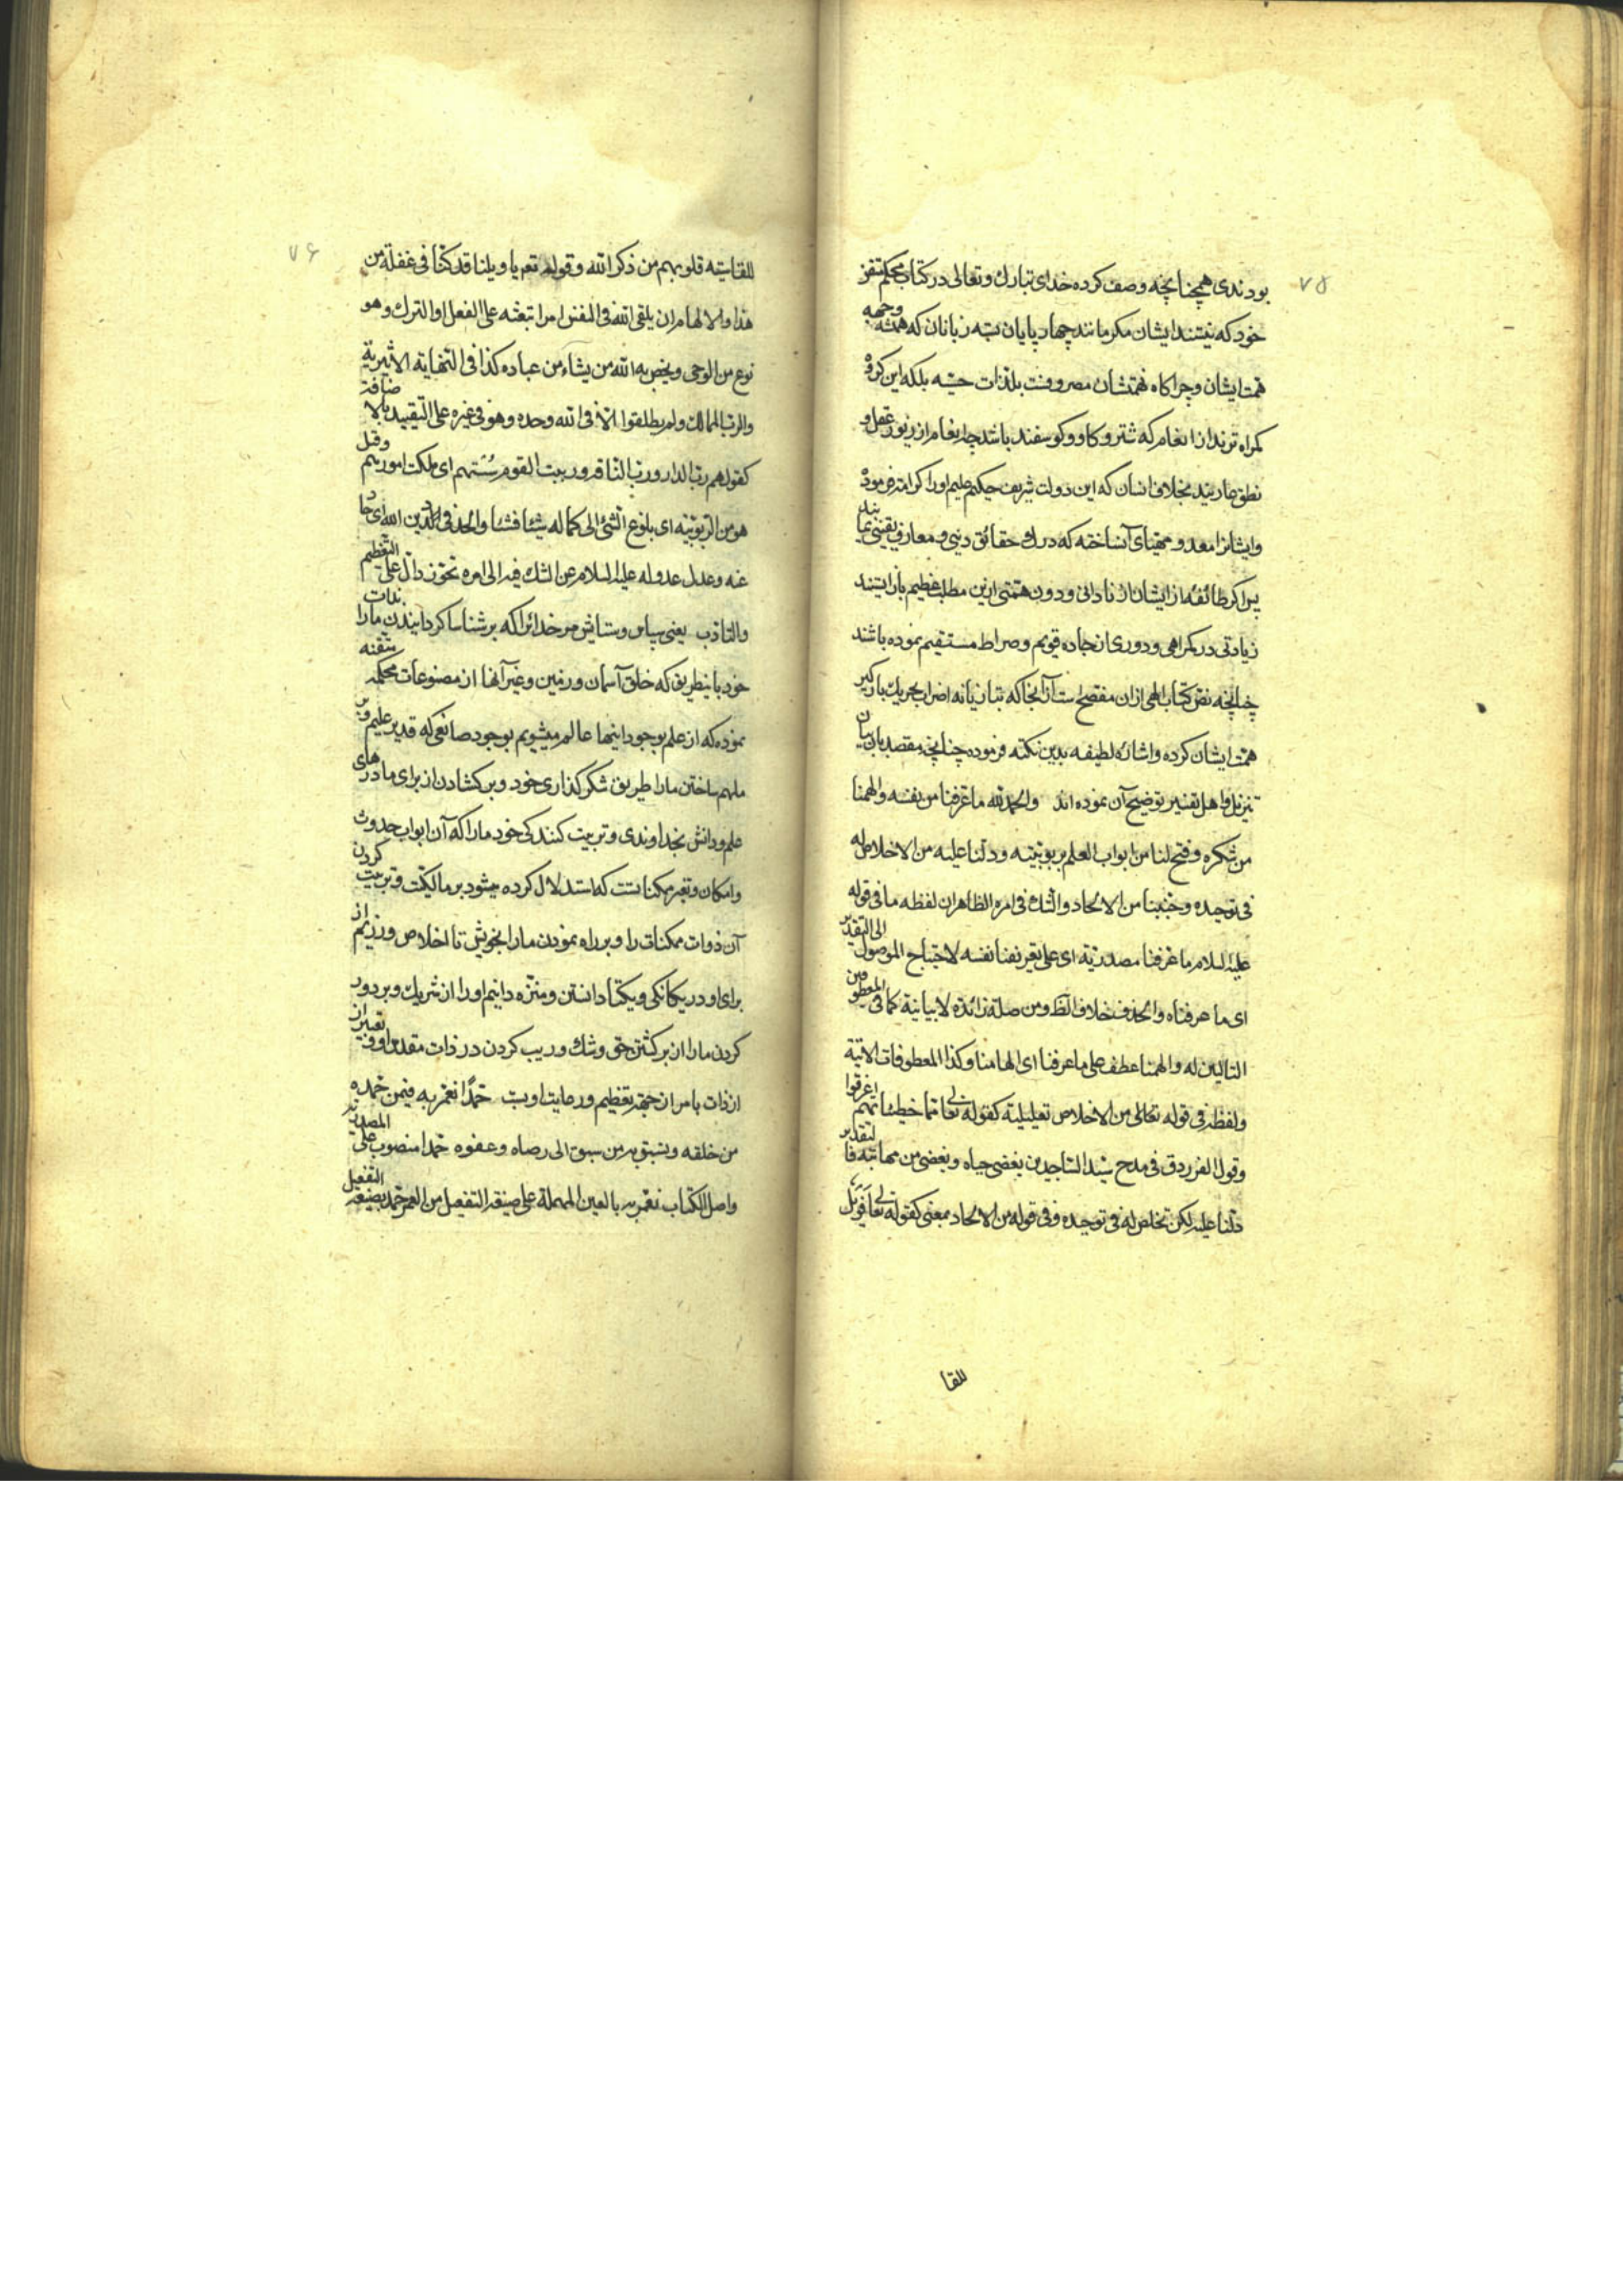 ۷۵
بودندی همچنانچه وصف کرده خدای تبارک و تعالی در کتاب محکم
خود که نیستند ایشان مکر مانند چهار پایان بسته زبانان که همه وجهه
همت ایشان و چراکاه نهمتشان مصروفست بلذات حسّیه بلکه این کروه
کمراه ترند از انعام که شتر و کاو و کوسفند باشد چه انعام از زیور عقل و
نطق عاریند بخلاف انسان که این دولت شریف حکیم علیم او را کرامت فرموده
و ایشانرا معد و مهیای آن ساخته که درک حقائق دینی و معارف یقینی نمایند
پس اکر طائفه از ایشان از نادانی و دون همتی ازین مطلب عظیم بازایستند
زیادتی در کمراهی و دوری از جاده قویم و صراط مستقیم نموده باشند
چنانچه نص کتاب الهی ازان مفصح است آنجا که بتازیانه اضراب تحریک بارکیر
همت ایشان کرده و اشاره لطیفه بدین نکته فرموده چنانچه مقصد بیان
تنزیل و اهل تفسیر توضیح آن نموده اند والحمد لله ما عرفنا من نفسه والهمنا
من شکره و فتح لنا من ابواب العلم بربوبیته و دلنا علیه من الاخلاص له
فی توحیده و جنبنا من الالحاد والشک فی امره الظاهر ان لفظه ما فی قوله
علیه السلام ما عرفنا مصدریة ای علی تعریفنا نفسه لاحتیاج الموصول الی التقدیر
ای ما عرفناه والحذف خلاف الظ و من صلة زائدة لا بیانیة کما فی المعطوفین
التالیین له والهمنا عطف علی ما عرفنا ای الهامنا و کذا المعطوفات الاتیة
و لفظه فی قوله تعالی من الاخلاص تعلیلیة کقوله تعالی مما خطیئاتهم اغرقوا
و قول الفرزدق فی مدح سید الساجدین یغضی حیاء و یغضی من مهابته فالتقدیر
دلنا علیه لکن تخلص له فی توحیده و فی قوله من الالحاد بمعنی کقوله تعالی فویل
للقا
۷۶
للقاسیة قلوبهم من ذکر الله و قوله تعم یا ویلنا قد کنا فی غفلة من
هذا والالهام ان یلقی الله فی النفس امرا تبعثه علی الفعل او الترک و هو
نوع من الوحی و یخص به الله من یشاء من عباده کذا فی النهایة الاثیریة
والرب المالک و لم یطلقوا الا فی الله وحده و هو فی غیره علی التقیید بالاضافة
کقولهم رب الدار و رب الناقه و ربیت القوم سستهم ای ملکت امورهم و قیل
هو من التربیة ای بلوغ الشئ الی کماله شیئا فشیئا والحد فی الدین الله ای حاد
عنه و عدل عدوله علیه السلام عن الشک فیه الی امره تجوز دال علی التعظیم
والتادب یعنی سپاس و ستایش مر خدائرا که بر شناسا کردانیدن مارا بذات
خود باینطریق که خلق آسمان و زمین و غیر آنها از مصنوعات محکمه متقنه
نموده که از علم بوجود اینها عالم میشویم بوجود صانعی که قدیر علیم و بر
ملهم ساختن ما را طریق شکرکذاری خود و برکشادن از برای ما درهای
علم و دانش بخداوندی و تربیت کنندکی خود مارا که آن ابواب حدوث
و امکان و تغیر ممکناتست که استدلال کرده میشود بر مالکیت و تربیت کردن
آن ذوات ممکنات را و بر راه نمودن مارا بخویش تا اخلاص ورزیم از
برای او در یکانکی و یکتا دانستن و منزه دانیم او را از شریک و بر دور
کردن ما را از برکشتن حق و شک و ریب کردن در ذات مقدس او و تعبیر از
از ذات بامر از جهة تعظیم و رعایت ادبست حمدًا نعمر به فیمن حمده
من خلقه و نسبق به من سبق الی رضاه و عفوه حمدا منصوب علی المصدریة
و اصل الکتاب نعمر به بالعین المهملة علی صیغة التفعیل من العمر حمد بصیغة التفعیل